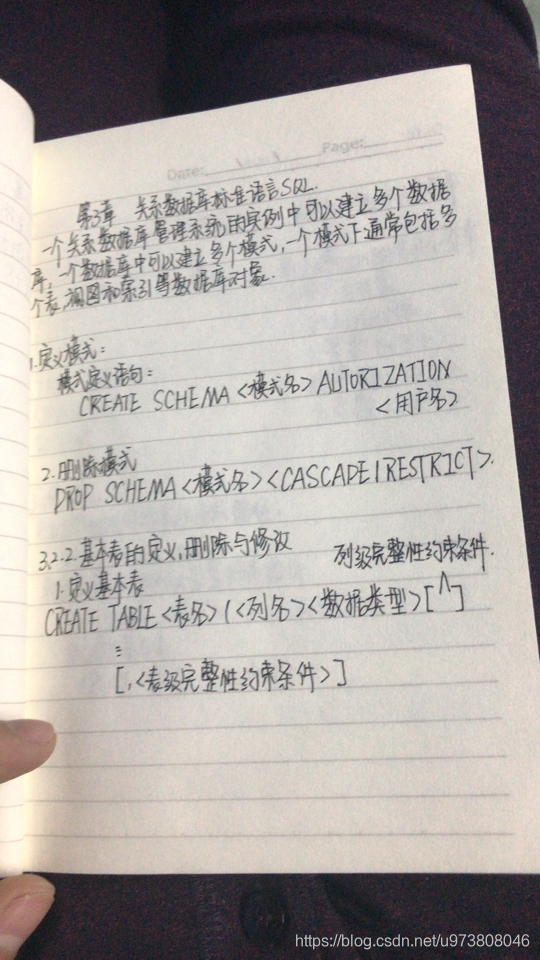 Date: Page:
第3章 关系数据库标准语言SQL.
一个关系数据库管理系统的实例中可以建立多个数据
库,一个数据库中可以建立多个模式,一个模式下通常包括多
个表,视图和索引等数据库对象.
1.定义模式:
模式定义语句:
CREATE SCHEMA <模式名> AUTORIZATION
<用户名>
2.删除模式
DROP SCHEMA <模式名> <CASCADE | RESTRICT>.
3.2.2.基本表的定义,删除与修改
列级完整性约束条件.
1.定义基本表
CREATE TABLE <表名> (<列名> <数据类型> [^]
[,<表级完整性约束条件>]
https://blog.csdn.net/u973808046